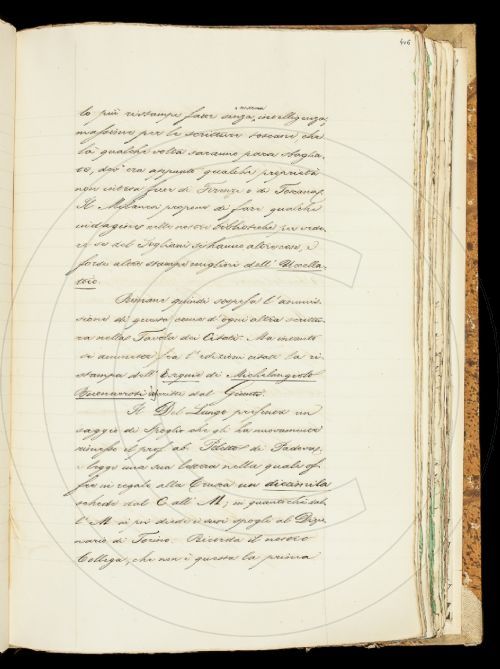 406
e norma
lo più ristampe fatte senza intelligenza,
massime per le scritture toscane che
là qualche volta saranno parse sbaglia-
te, dov' era appunto qualche proprietà
non intesa fuor di Firenze o di Toscana.
Il Milanesi propone di fare qualche
indagine nelle nostre biblioteche per vede-
re se del Cigliani si hanno altre cose, e
forse altre stampe migliori dell' Uccella-
toio.
Rimane quindi sospesa l' ammis-
sione di questa, come d' ogni altra scrittu-
ra nella Tavola dei Citati. Ma intanto
si ammette fra l' edizioni citate la ri-
stampa dell' Esequie di Michelangiolo
Buonarroti scritte dal Giunti.
Il Del Lungo presenta un
saggio di spoglio che gli ha nuovamente
rimesso il prof. ab. di Padova,
e legge una sua lettera nella quale of-
fre in regalo alla Crusca una diecimila
schede dal C all' M; in quanto che dal-
l' M in poi diede i suoi spogli al Dizio-
nario di Torino. Ricorda il nostro
Collega, che non è questa la prima